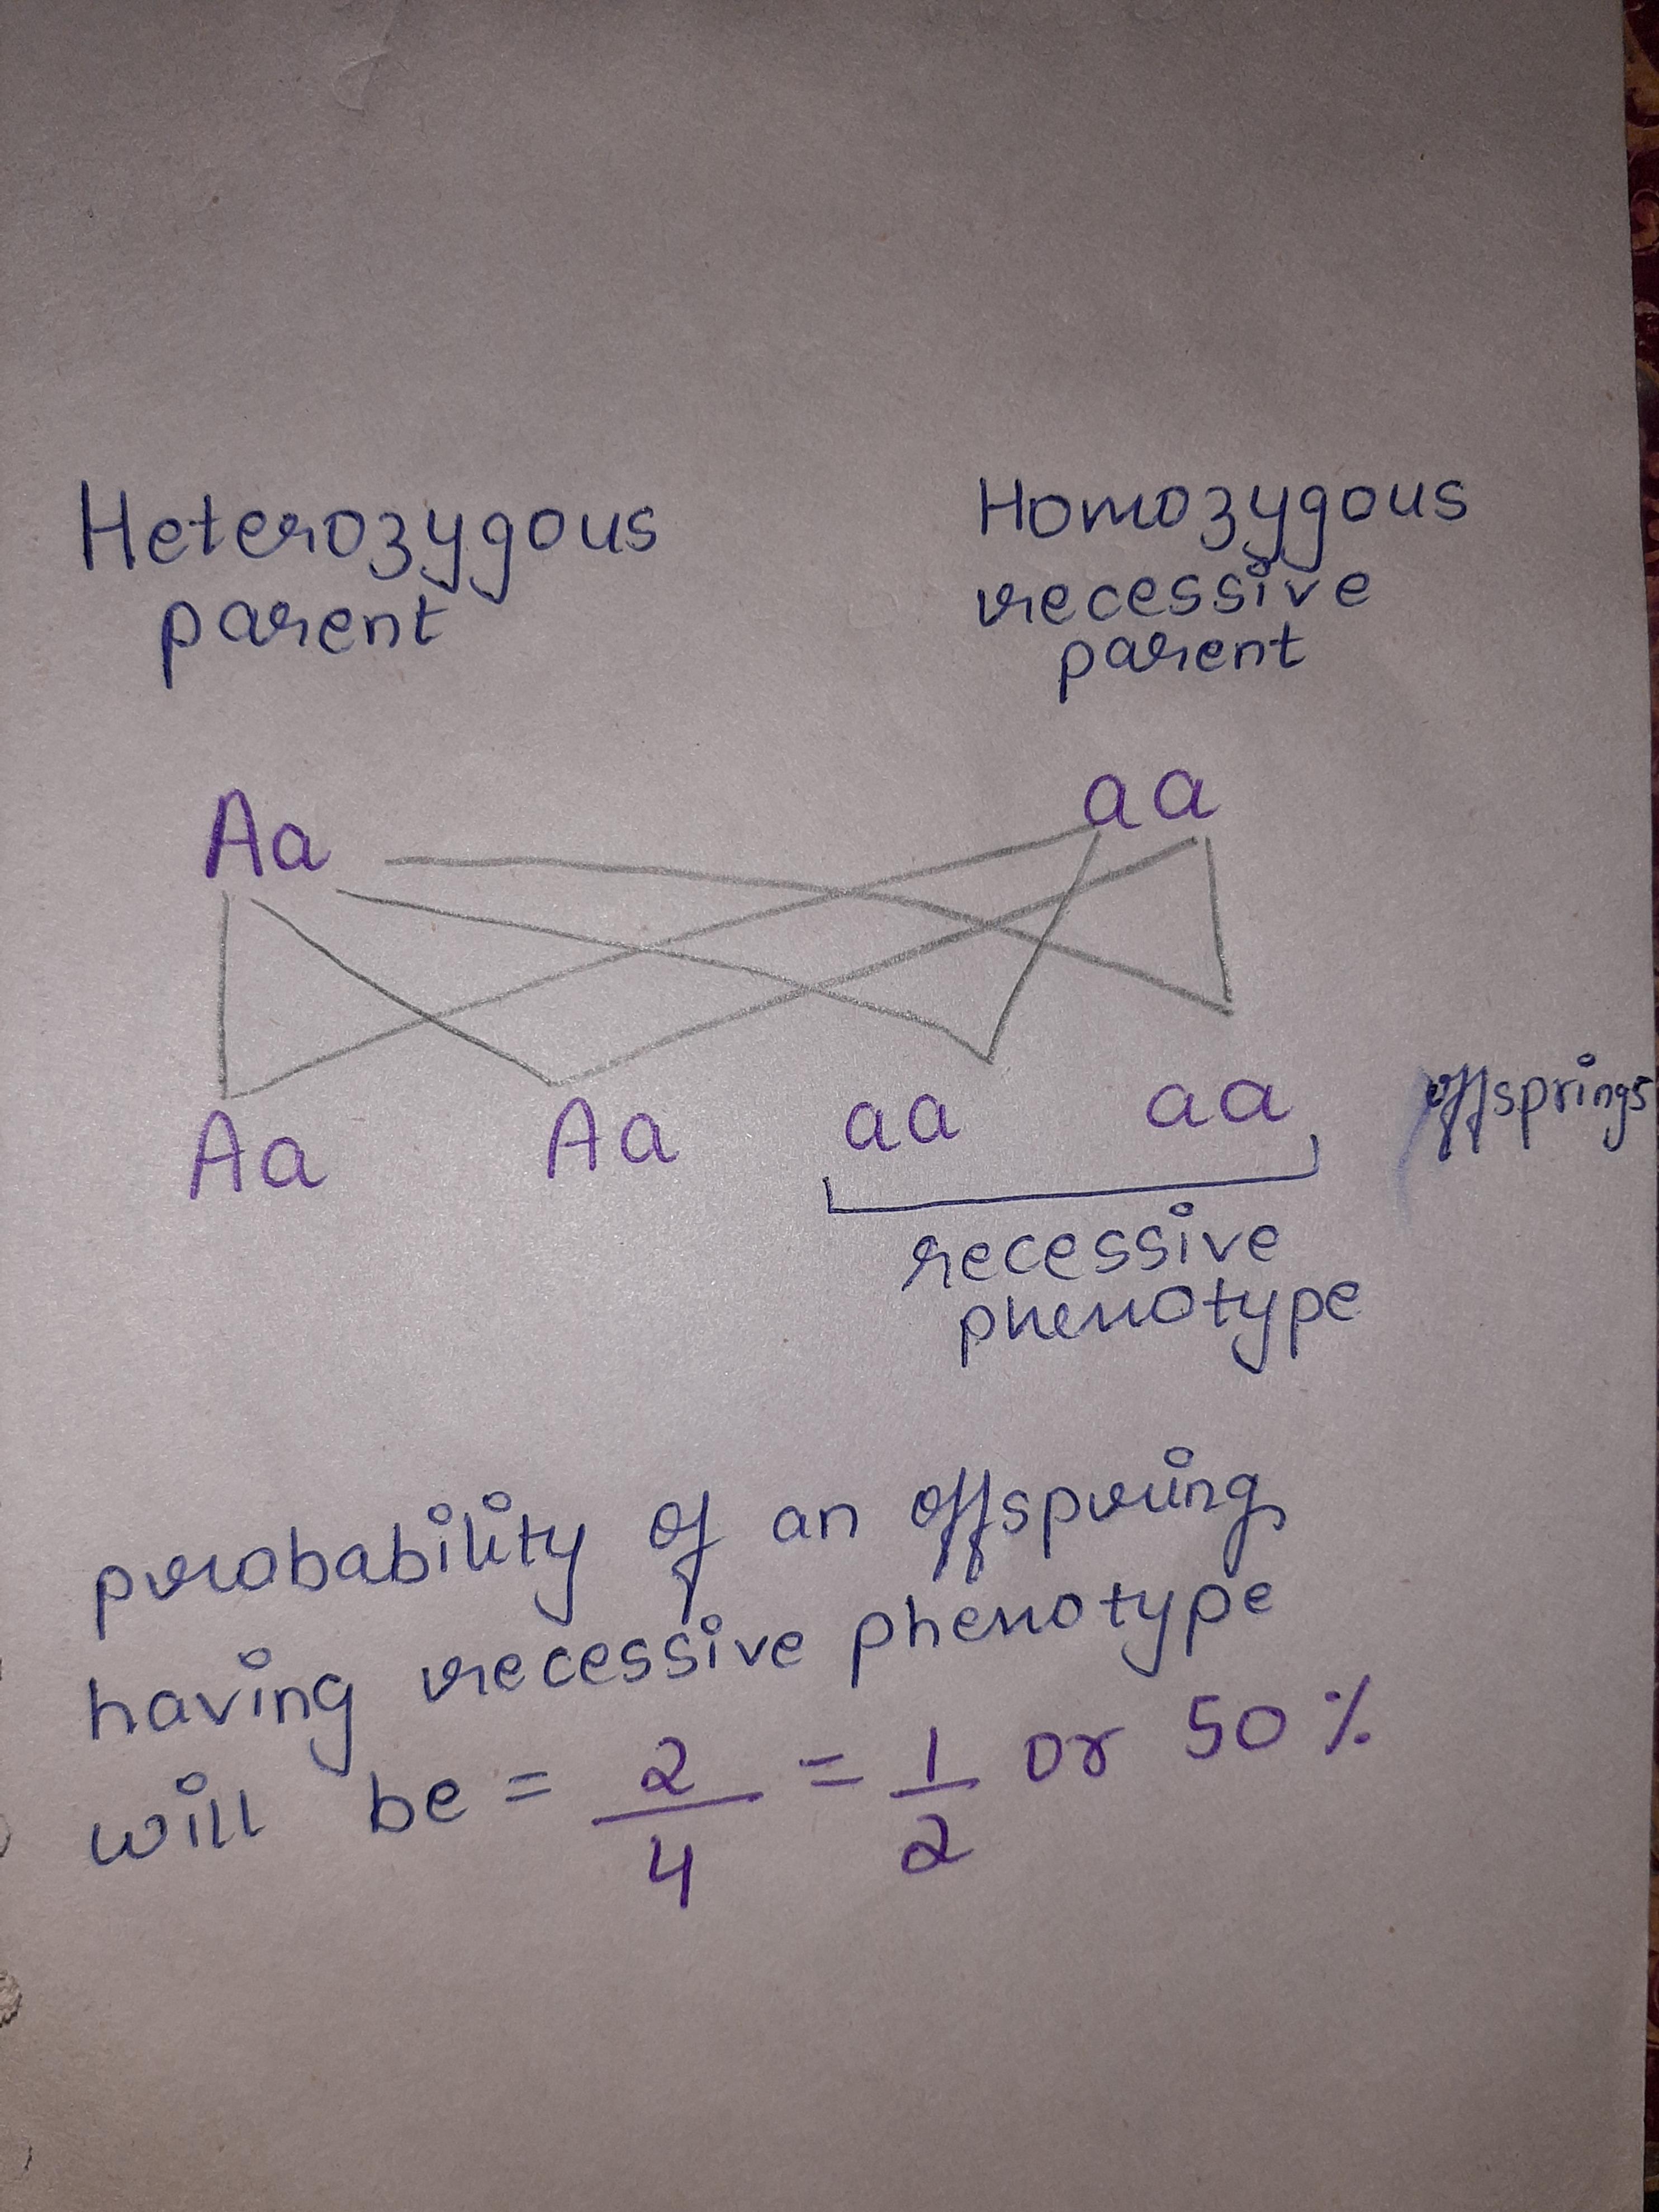 Heterozygous
parent
Homozygous
recessive
parent
Aa
aa
Aa Aa aa aa offsprings
recessive
phenotype
probability of an offspring
having recessive phenotype
will be = 2/4 = 1/2 or 50%